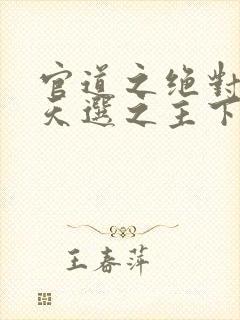 官道之绝對
天選之主下
王春萍